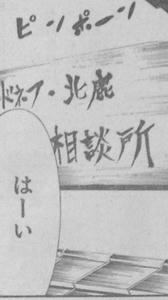 ピンポーン
ドネア・北鹿
相談所
はーい